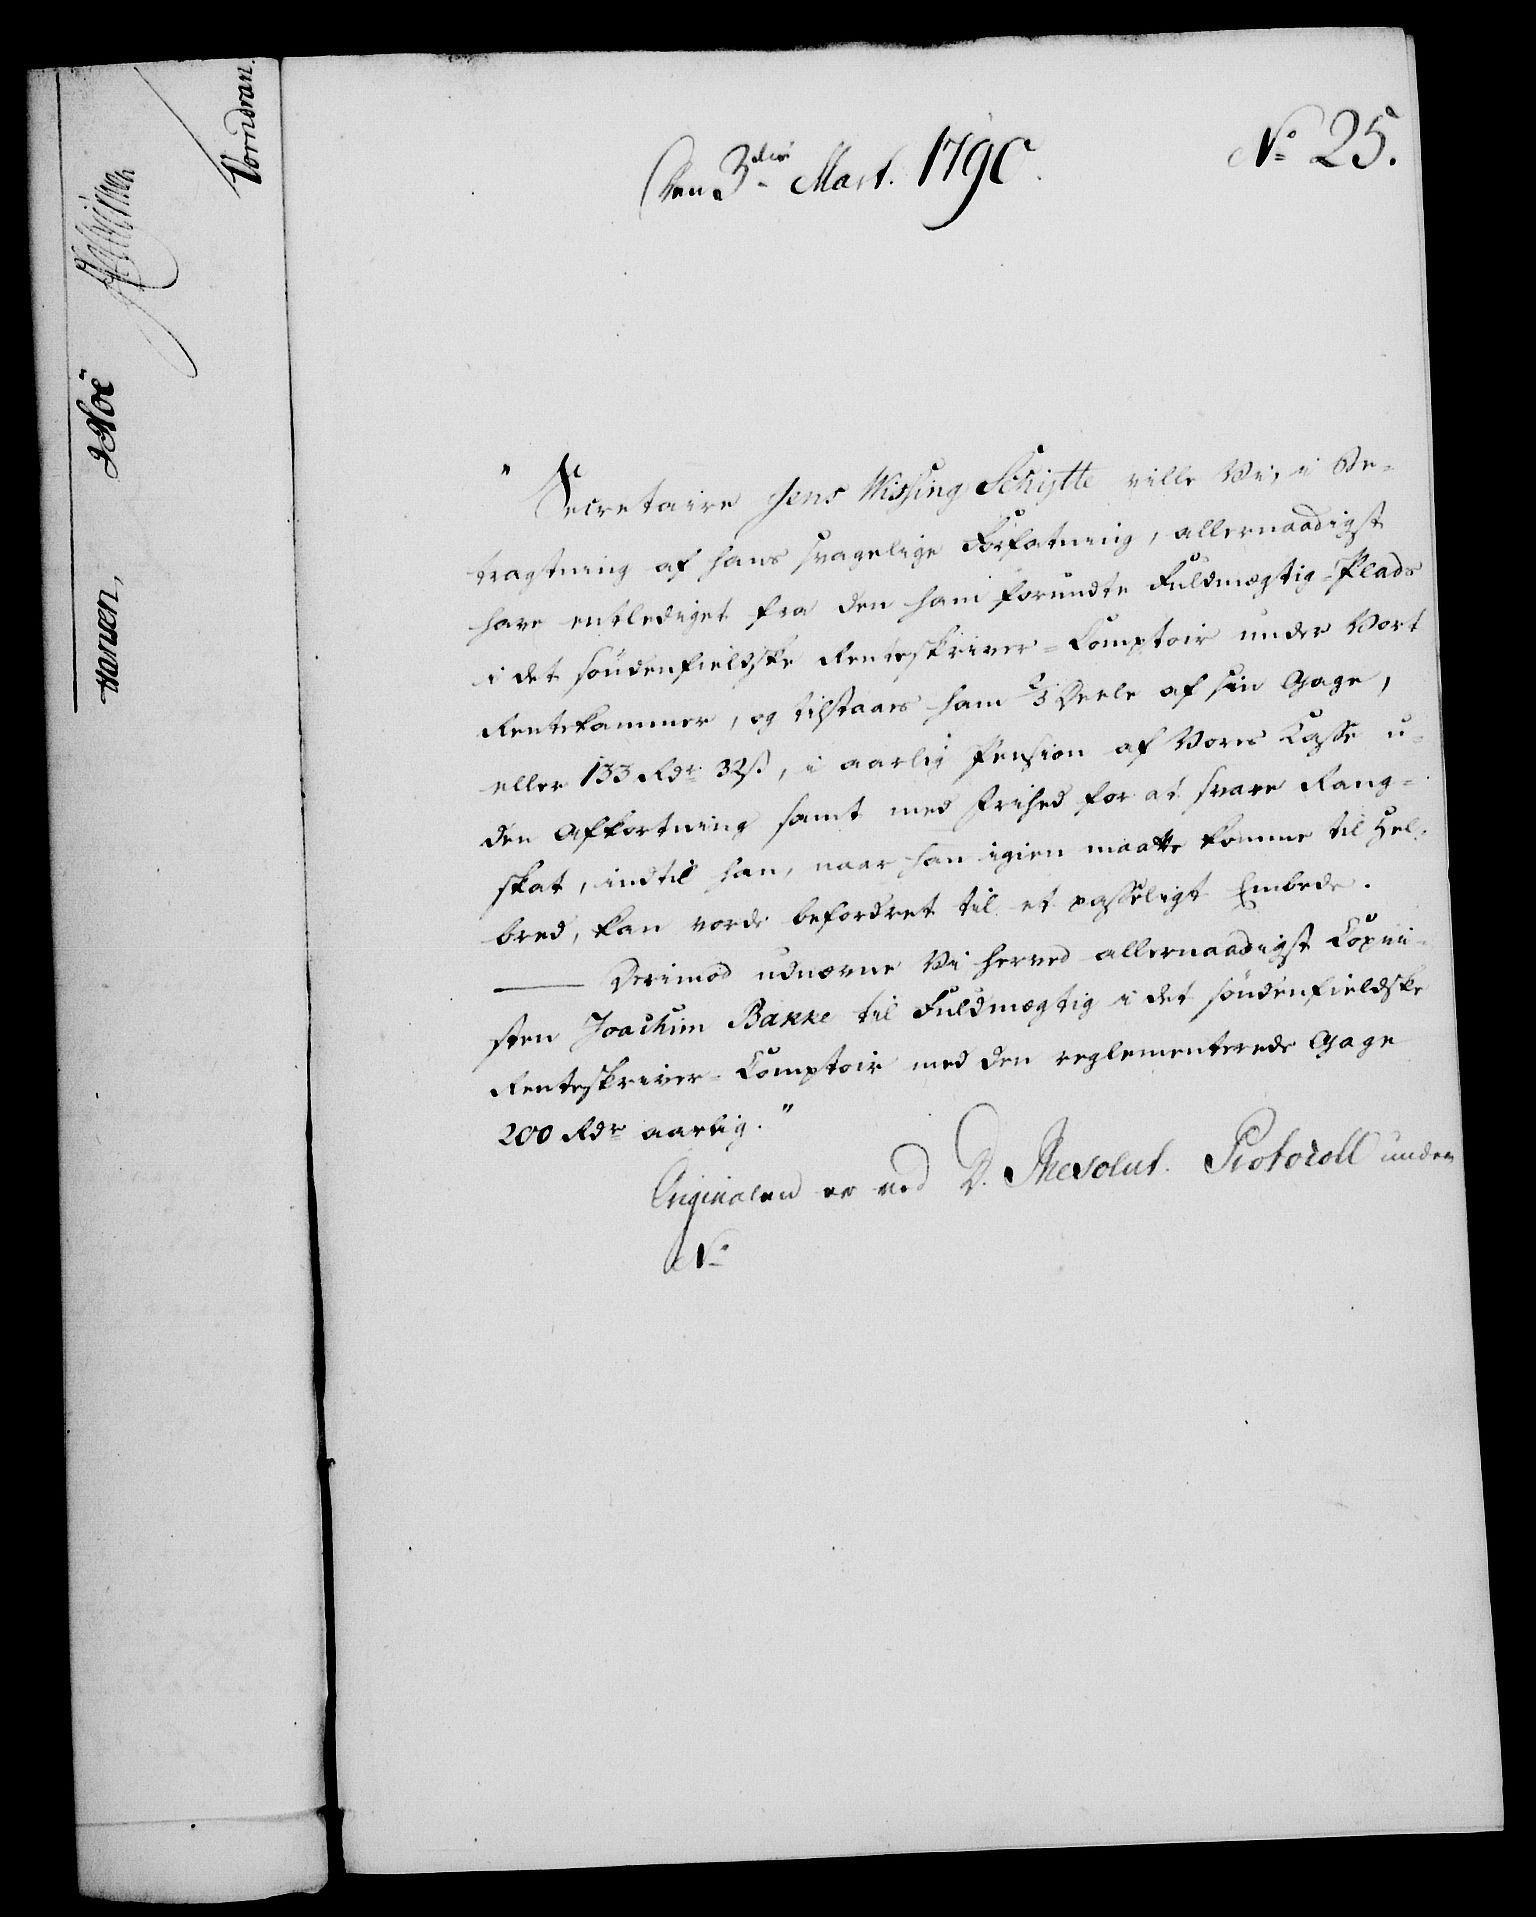 Den 3die Mart. 1790.
No 25.
"Secretaire Jens Wissing Schytte ville Vi, i Be-
tragtning af hans svagelige Forfatning, allernaadigst
have entlediget fra den ham forundte Fuldmægtig-Plads
i det søndenfieldske Renteskriver-Comptoir under Vort
Rentekammer, og tilstaaes ham 2/3 Deele af sin Gage,
eller 133 Rdr. 32 s., i aarlig Pension af Vores Casse u-
den Afkortning samt med Frihed for at svare Rang-
skat, indtil han, naar han igien maatte komme til Hel-
bred, kan vorde befordret til et passeligt Embede.
Derimod udnævne Vi herved allernaadigst Copii-
sten Joachim Bakke til Fuldmægtig i det søndenfieldske
Renteskriver-Comptoir med den reglementerede Gage
200 Rdr aarlig."
Originalen er ved D. Resolut. Protocoll under
No
Vorndran.
Hoë
Hansen,